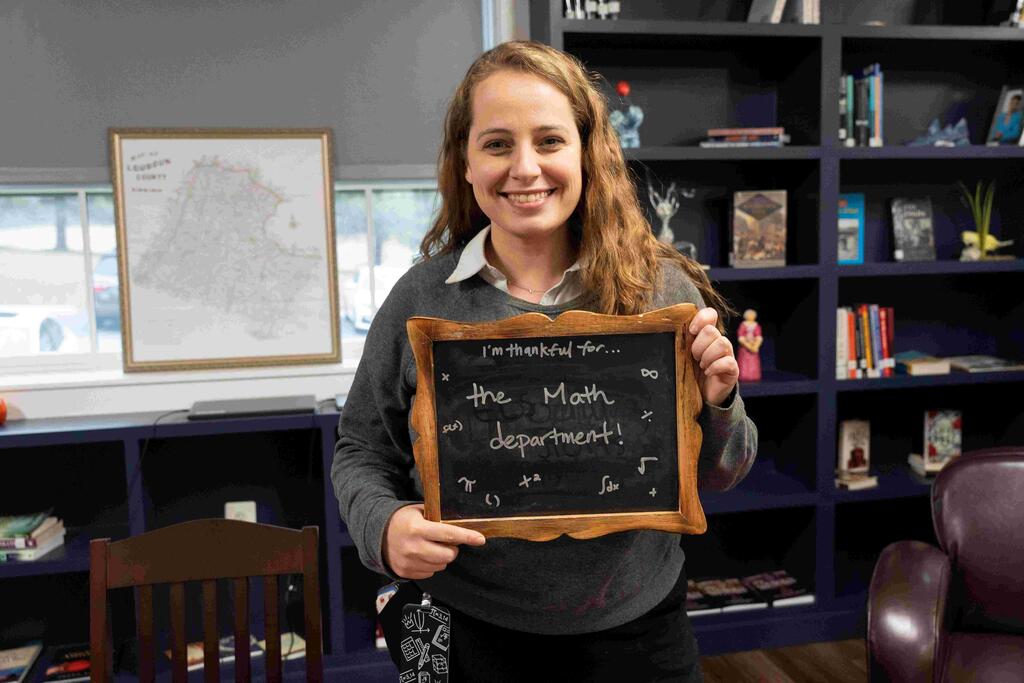 MAP OF
LOUDOUN
COUNTY
VIRGINIA
I'm thankful for...
× ∞
the Math
f(x) ÷
department!
√
π x² ∫dx
() +